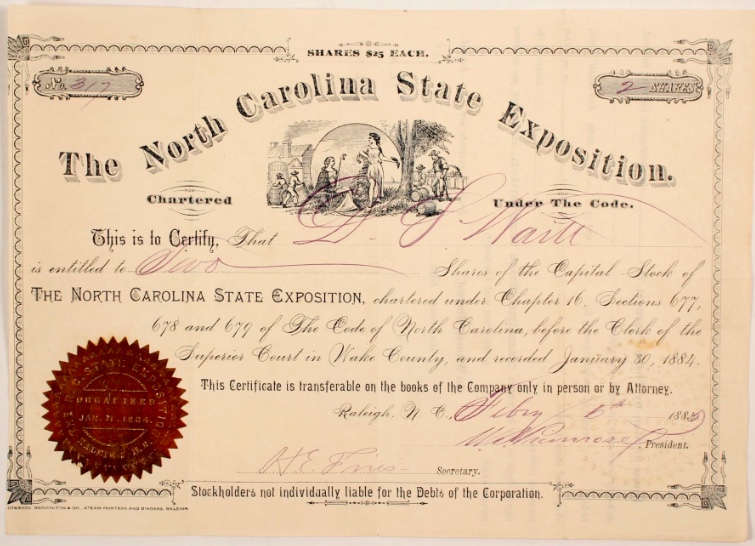 SHARES $25 EACH.
No. 317
2 SHARES
The North Carolina State Exposition.
Chartered Under The Code.
This is to Certify, That D. S. Waitt
is entitled to Two Shares of the Capital Stock of
THE NORTH CAROLINA STATE EXPOSITION, chartered under Chapter 16, Sections 677,
678 and 679 of The Code of North Carolina, before the Clerk of the
Superior Court in Wake County, and recorded January 30, 1884.
This Certificate is transferable on the books of the Company only in person or by Attorney.
Raleigh, N. C. Feby 6th 1885
W. S. Primrose President.
H. E. Fries Secretary.
Stockholders not individually liable for the Debts of the Corporation.
EDWARDS, BROUGHTON & CO., STEAM PRINTERS AND BINDERS, RALEIGH.
STATE EXPOSITION
ORGANIZED
JAN. 31, 1884.
RALEIGH, N.C.